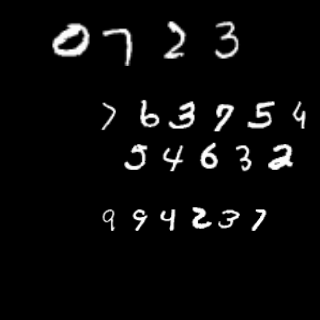 0723
763754
54632
994237